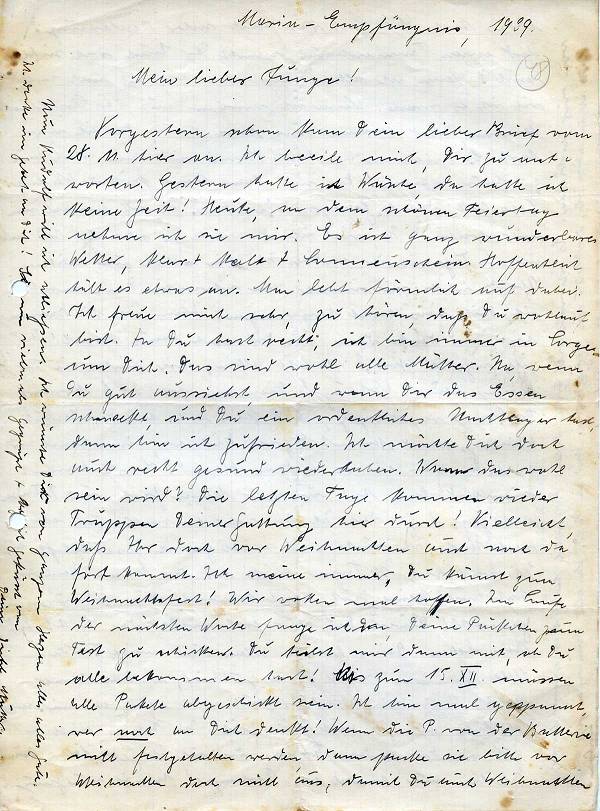 Maria-Empfängnis, 1939.
48
Mein lieber Junge!
Vorgestern schon kam Dein lieber Brief vom
28. 11. hier an. Ich beeile mich, Dir zu ant-
worten. Gestern hatte ich Wäsche, da hatte ich
keine Zeit! Heute, an dem schönen Feiertag
nehme ich sie mir. Es ist ganz wunderbares
Wetter, klar + kalt + Sonnenschein. Hoffentlich
hält es etwas an. Man lebt förmlich auf dabei.
Ich freue mich sehr, zu hören, daß Du wohlauf
bist. Ja Du hast recht, ich bin immer in Sorge
um Dich. Das sind wohl alle Mütter. Na, wenn
Du gut aussiehst, und wenn Dir das Essen
schmeckt, und Du ein ordentliches Nachtlager hast,
dann bin ich zufrieden. Ich möchte Dich doch
auch recht gesund wiederhaben. Wann das wohl
sein wird? Die letzten Tage kommen wieder
Truppen Deiner Gattung hier durch! Vielleicht,
daß Ihr doch vor Weihnachten auch noch da
fort kommt. Ich meine immer, Du kämst zum
Weihnachtsfest! Wir wollen mal hoffen. Im Laufe
der nächsten Woche fange ich an, Deine Päckchen zum
Fest zu schicken. Du teilst mir dann mit, ob Du
alle bekommen hast! Bis zum 15. XII. müssen
alle Pakete abgeschickt sein. Ich bin mal gespannt,
wer noch an Dich denkt! Wenn die P. von der Batterie
nicht festgehalten werden, dann packe sie bitte vor
Weihnachten doch nicht aus, damit Du auch Weihnachten
Nun will ich schließen. Ich wünsche Dir von ganzem Herzen alles alles Gute.
Ich denke im Gebet an Dich! Sei nun vielmals gegrüßt + geküsst von
Deiner Mutter.